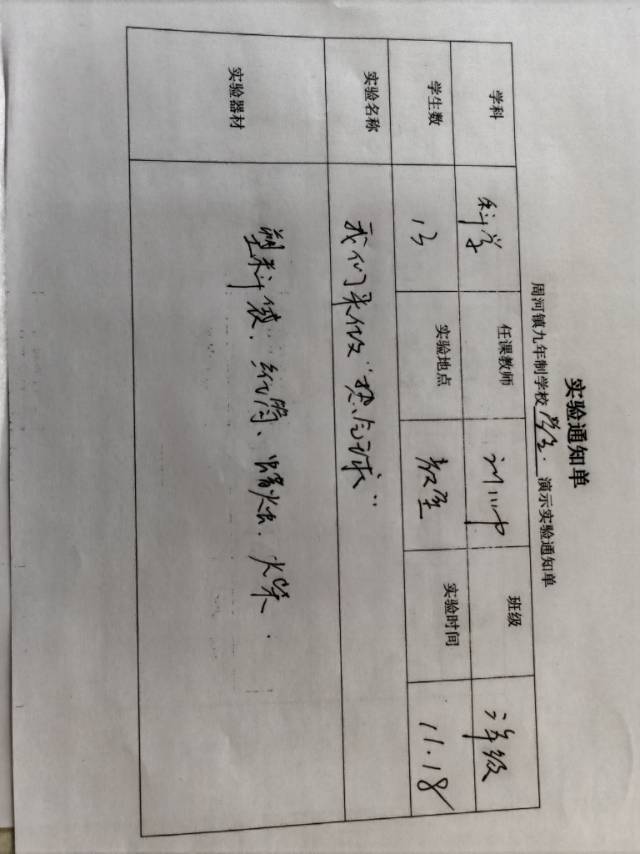 实验通知单
周河镇九年制学校 学生 演示实验通知单
学科 科学 任课教师 班级 三年级
学生数 13 实验地点 教室 实验时间 11.18
实验名称 我们来做“热气球”
实验器材 塑料袋、纸筒、蜡烛、火柴.